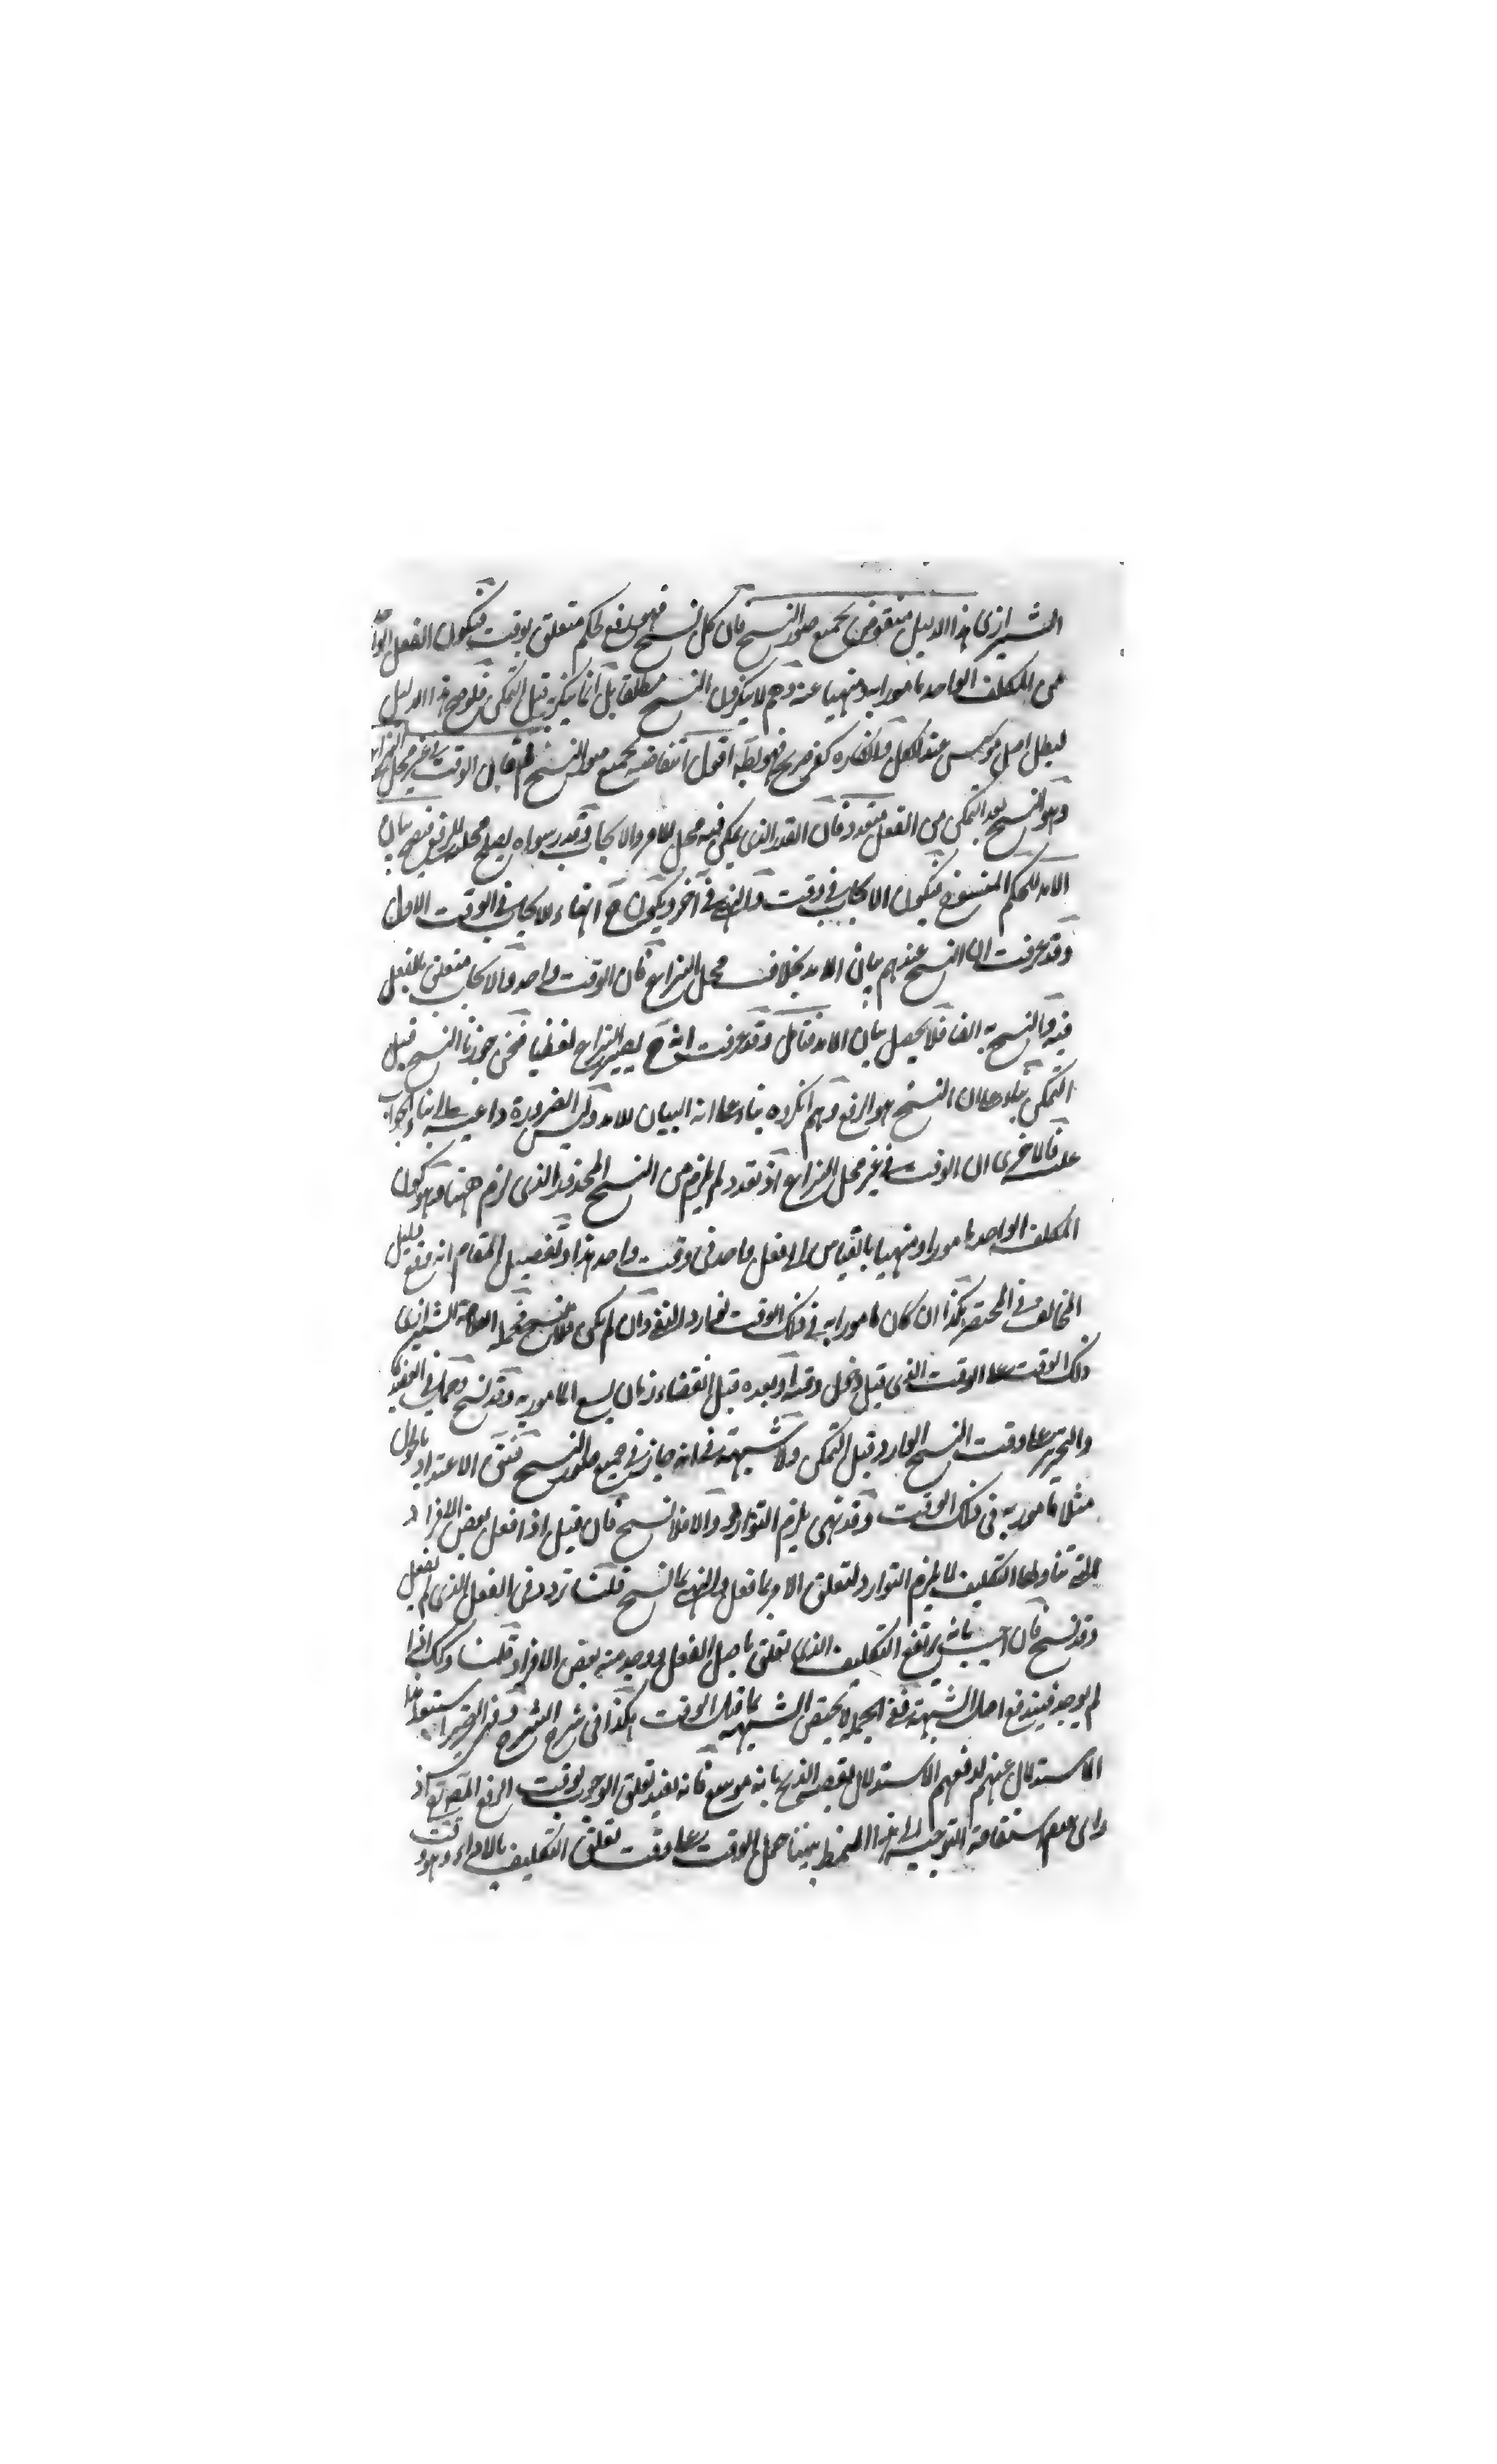 الشيرازى هذا الدليل منقوض بجميع صور النسخ فان كل نسخ فهو رفع لحكم متعلق بوقت فيكون الفعل الواحد
من المكلف الواحد مامورا به ومنهيا عنه وهم لا ينكرون النسخ مطلقا بل انما ينكرونه قبل التمكن فلو صح هذا الدليل
لبطل اصل عند الكل وانكاره كفر صريح فهو اقول انتقاضه بجميع صور النسخ فان الوقت فى غير محل النزاع
وهو النسخ بعد التمكن من الفعل متعدد فان القدر الذى يمكن فيه محل للامر والايجاب وقدر سواه يصلح محلا للرفع فيصح بيان
الامد للحكم المنسوخ فيكون الايجاب فى وقت والنهى فى آخر ويكون ح انتهاء للايجاب فى الوقت الاول
وقد عرفت ان النسخ عندهم بيان الامد بخلاف محل النزاع فان الوقت واحد والايجاب متعلق بالفعل
فيه والنسخ به ايضا فلا يحصل بيان الامد فتامل وقد عرفت انه ح يصير النزاع لفظيا فنحن جوزنا النسخ قبل
التمكن بناء على ان النسخ هو الرفع وهم انكروه بناء على انه البيان للامد وليس الضرورة داعية الى بناء الجواب
عليه فالاحرى ان الوقت فى غير محل النزاع اذ تعدد لم يلزم من النسخ المحذور الذى لزم ههنا وهو كون
المكلف الواحد مامورا ومنهيا بالقياس الى فعل واحد فى وقت واحد هذا وتفصيل المقام انه وقع دليل
المخالف فى المختصر هكذا ان كان مامورا به فى ذلك الوقت توارد النفى وان لم يكن فلا نسخ العلامة الشيرازى
ذلك الوقت على الوقت الذى قبل دخول وقته او بعده قبل انقضاء زمان يسع المامور به وقد نسخ وحمل فى
والتحرير على وقت النسخ الوارد قبل التمكن ولا شبهة فى انه جاز فى جميع صور النسخ
مثلا مامور به فى ذلك الوقت وقد نهى يلزم التوارد والا فلا نسخ فان قيل اذا فعل بعض الافراد
التى تناولها التكليف لا يلزم التوارد لتعلق الامر بما فعل والنهى بما نسخ قلنا نردد فى الفعل الذى لم يفعل
وقد نسخ فان اجيب بانه يرتفع التكليف الذى تعلق باصل الفعل ووجد منه بعض الافراد قلنا وكذلك اذا
لم يوجد فيندفع اصل الشبهة لا يختص الشبهة بما قبل الوقت هكذا فى شرح الشرح
الاستدلال عنهم لدفعهم الاستدلال بقصة الذبح بانه موسع فانه يفيد تعلق الوجوب بوقت الرفع
راى عدم استقامة التوجيه الى هذا حمل الوقت على وقت تعلق التكليف بالاداء وهو